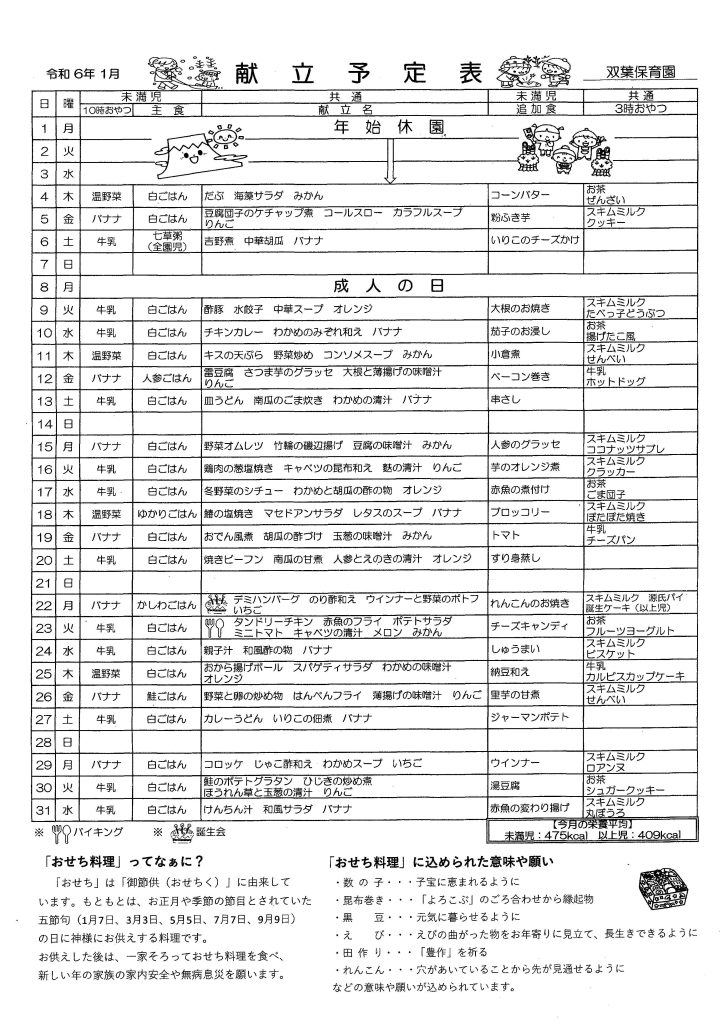 令和6年1月 献立予定表 双葉保育園
日 曜 未満児 共通 未満児 共通
10時おやつ 主食 献立名 追加食 3時おやつ
1 月 年始休園
2 火
3 水
4 木 温野菜 白ごはん だぶ 海藻サラダ みかん コーンバター お茶
ぜんざい
5 金 バナナ 白ごはん 豆腐団子のケチャップ煮 コールスロー カラフルスープ 粉ふき芋 スキムミルク
りんご クッキー
6 土 牛乳 七草粥 吉野煮 中華胡瓜 バナナ いりこのチーズかけ
(全園児)
7 日
8 月 成人の日
9 火 牛乳 白ごはん 酢豚 水餃子 中華スープ オレンジ 大根のお焼き スキムミルク
たべっ子どうぶつ
10 水 牛乳 白ごはん チキンカレー わかめのみぞれ和え バナナ 茄子のお浸し お茶
揚げたこ風
11 木 温野菜 白ごはん キスの天ぷら 野菜炒め コンソメスープ みかん 小倉煮 スキムミルク
せんべい
12 金 バナナ 人参ごはん 雷豆腐 さつま芋のグラッセ 大根と薄揚げの味噌汁 ベーコン巻き 牛乳
りんご ホットドッグ
13 土 牛乳 白ごはん 皿うどん 南瓜のごま炊き わかめの清汁 バナナ 串さし
14 日
15 月 バナナ 白ごはん 野菜オムレツ 竹輪の磯辺揚げ 豆腐の味噌汁 みかん 人参のグラッセ スキムミルク
ココナッツサブレ
16 火 牛乳 白ごはん 鶏肉の葱塩焼き キャベツの昆布和え 麩の清汁 りんご 芋のオレンジ煮 スキムミルク
クラッカー
17 水 牛乳 白ごはん 冬野菜のシチュー わかめと胡瓜の酢の物 オレンジ 赤魚の煮付け お茶
ごま団子
18 木 温野菜 ゆかりごはん 鯖の塩焼き マセドアンサラダ レタスのスープ バナナ ブロッコリー スキムミルク
ぽたぽた焼き
19 金 バナナ 白ごはん おでん風煮 胡瓜の酢づけ 玉葱の味噌汁 みかん トマト 牛乳
チーズパン
20 土 牛乳 白ごはん 焼きビーフン 南瓜の甘煮 人参とえのきの清汁 オレンジ すり身蒸し
21 日
22 月 バナナ かしわごはん デミハンバーグ のり酢和え ウインナーと野菜のポトフ れんこんのお焼き スキムミルク 源氏パイ
いちご 誕生ケーキ(以上児)
23 火 牛乳 白ごはん タンドリーチキン 赤魚のフライ ポテトサラダ チーズキャンディ お茶
ミニトマト キャベツの清汁 メロン みかん フルーツヨーグルト
24 水 牛乳 白ごはん 親子汁 和風酢の物 バナナ しゅうまい スキムミルク
ビスケット
25 木 温野菜 白ごはん おから揚げボール スパゲティサラダ わかめの味噌汁 納豆和え 牛乳
オレンジ カルピスカップケーキ
26 金 バナナ 鮭ごはん 野菜と卵の炒め物 はんぺんフライ 薄揚げの味噌汁 りんご 里芋の甘煮 スキムミルク
せんべい
27 土 牛乳 白ごはん カレーうどん いりこの佃煮 バナナ ジャーマンポテト
28 日
29 月 バナナ 白ごはん コロッケ じゃこ酢和え わかめスープ いちご ウインナー スキムミルク
ロアンヌ
30 火 牛乳 白ごはん 鮭のポテトグラタン ひじきの炒め煮 湯豆腐 お茶
ほうれん草と玉葱の清汁 りんご シュガークッキー
31 水 牛乳 白ごはん けんちん汁 和風サラダ バナナ 赤魚の変わり揚げ スキムミルク
丸ぼうろ
※ バイキング ※ 誕生会 【今月の栄養平均】
未満児:475kcal 以上児:409kcal
「おせち料理」ってなぁに?
「おせち」は「御節供(おせちく)」に由来して
います。もともとは、お正月や季節の節目とされていた
五節句(1月7日、3月3日、5月5日、7月7日、9月9日)
の日に神様にお供えする料理です。
お供えした後は、一家そろっておせち料理を食べ、
新しい年の家族の家内安全や無病息災を願います。
「おせち料理」に込められた意味や願い
・数の子・・・子宝に恵まれるように
・昆布巻き・・・「よろこぶ」のごろ合わせから縁起物
・黒豆・・・元気に暮らせるように
・えび・・・えびの曲がった物をお年寄りに見立て、長生きできるように
・田作り・・・「豊作」を祈る
・れんこん・・・穴があいていることから先が見通せるように
などの意味や願いが込められています。